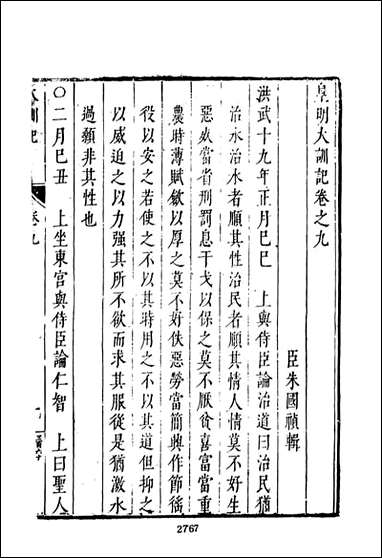 皇明大訓記卷之九
臣朱國禎輯
洪武十九年正月巳巳　上與侍臣論治道曰治民猶
治水治水者順其性治民者順其情人情莫不好生
惡死當省刑罰息干戈以保之莫不厭貧喜富當重
農時薄賦斂以厚之莫不好佚惡勞當簡興作節徭
役以安之若使之不以其時用之不以其道但抑之
以威迫之以力强其所不欲而求其服從是猶激水
過顙非其性也
〇二月巳丑　上坐東宫與侍臣論仁智　上曰聖人
大訓記
卷九
2767